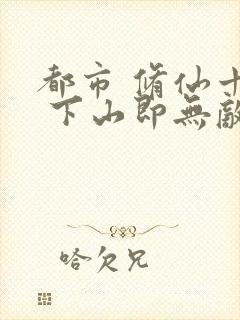 都市 脩仙十
下山即無敵
哈欠兄